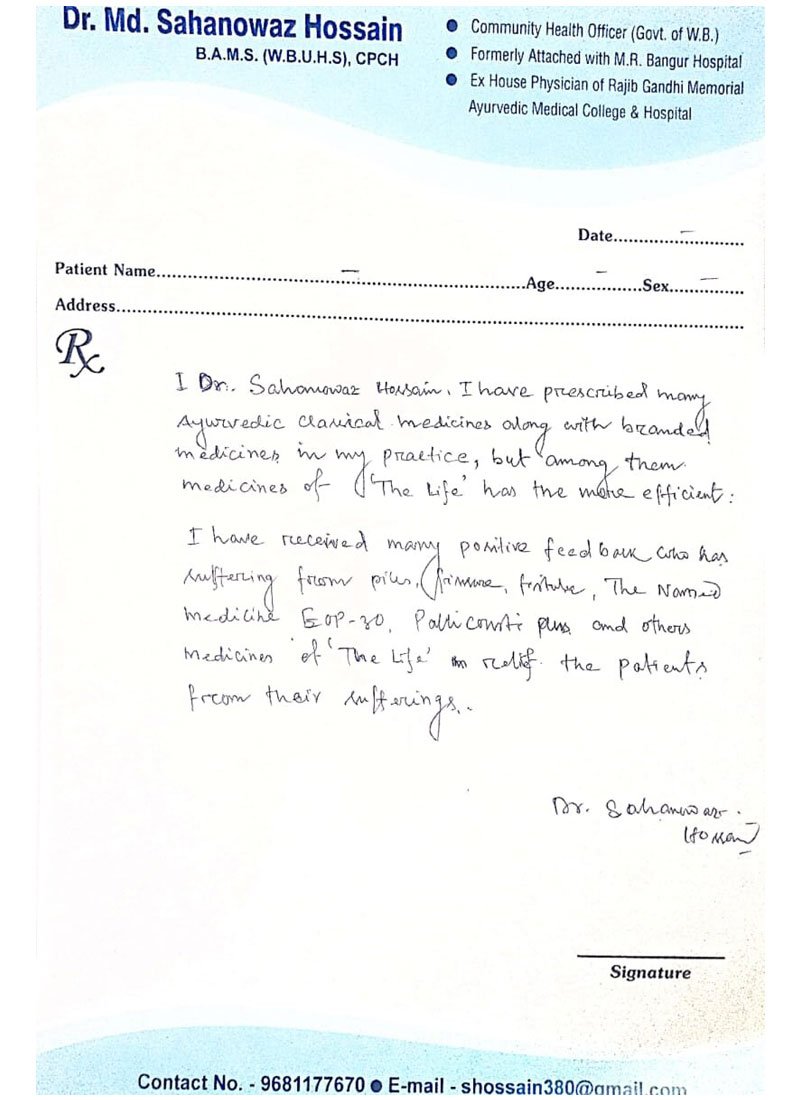 Dr. Md. Sahanowaz Hossain
B.A.M.S. (W.B.U.H.S), CPCH
Community Health Officer (Govt. of W.B.)
Formerly Attached with M.R. Bangur Hospital
Ex House Physician of Rajib Gandhi Memorial
Ayurvedic Medical College & Hospital
Date..........................
Patient Name..........................Age...............Sex...............
Address..........................
Rx
I Dr. Sahanowaz Hossain. I have prescribed many
Ayurvedic classical medicines along with branded
medicines in my practice, but among them
medicines of 'The Life' has the more efficient.
I have received many positive feedback who has
suffering from piles, fissure, fistula, The Named
medicine EOP-30, Palliconsti plus and others
medicines of 'The Life' relief the patients
from their sufferings.
Dr. Sahanowaz
Hossain
Signature
Contact No. - 9681177670 ● E-mail - shossain380@gmail.com